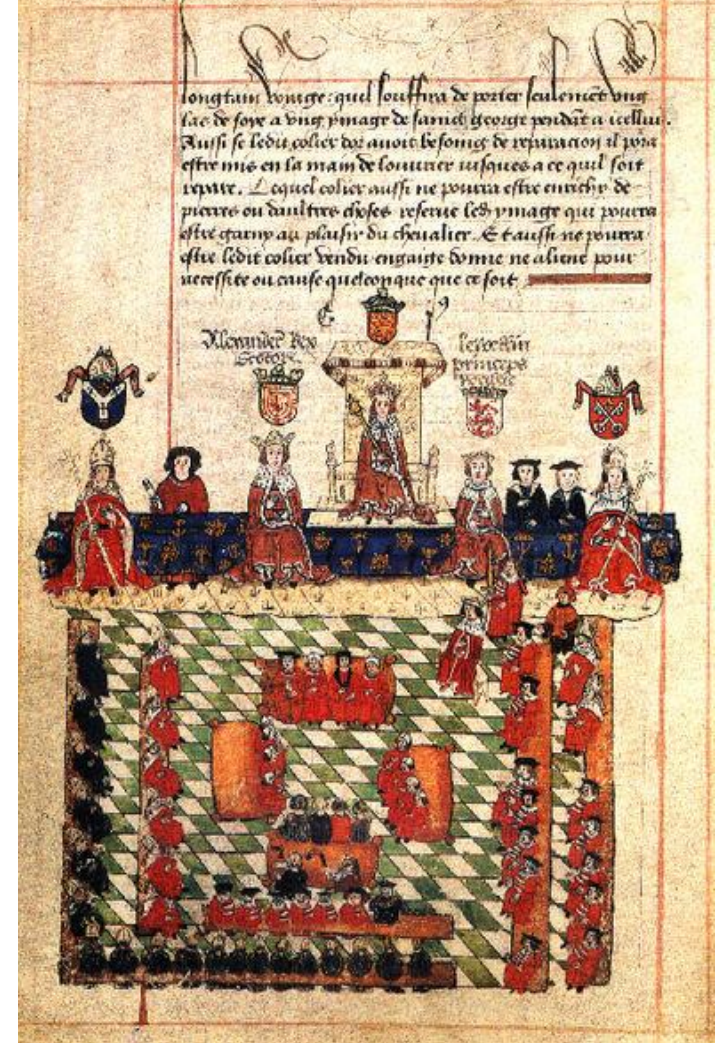 longtain voiage: quil souffira de porter seulement ung
las de soye a ung ymage de sainct george pendāt a icellui.
Aussi se ledit colier dor auoit besoing de reparacion il pora
estre mis en la main de louurier iusques a ce quil soit
repare. Lequel colier aussi ne pourra estre enrichy de
pierres ou daultres choses reserue ledˢ ymage qui pourra
estre garny au plaisir du cheualier. Et aussi ne pourra
estre ledit colier vendu engaige donne ne aliene pour
necessite ou cause quelconque que ce soit
Alexander Rex
Scotorū
princeps